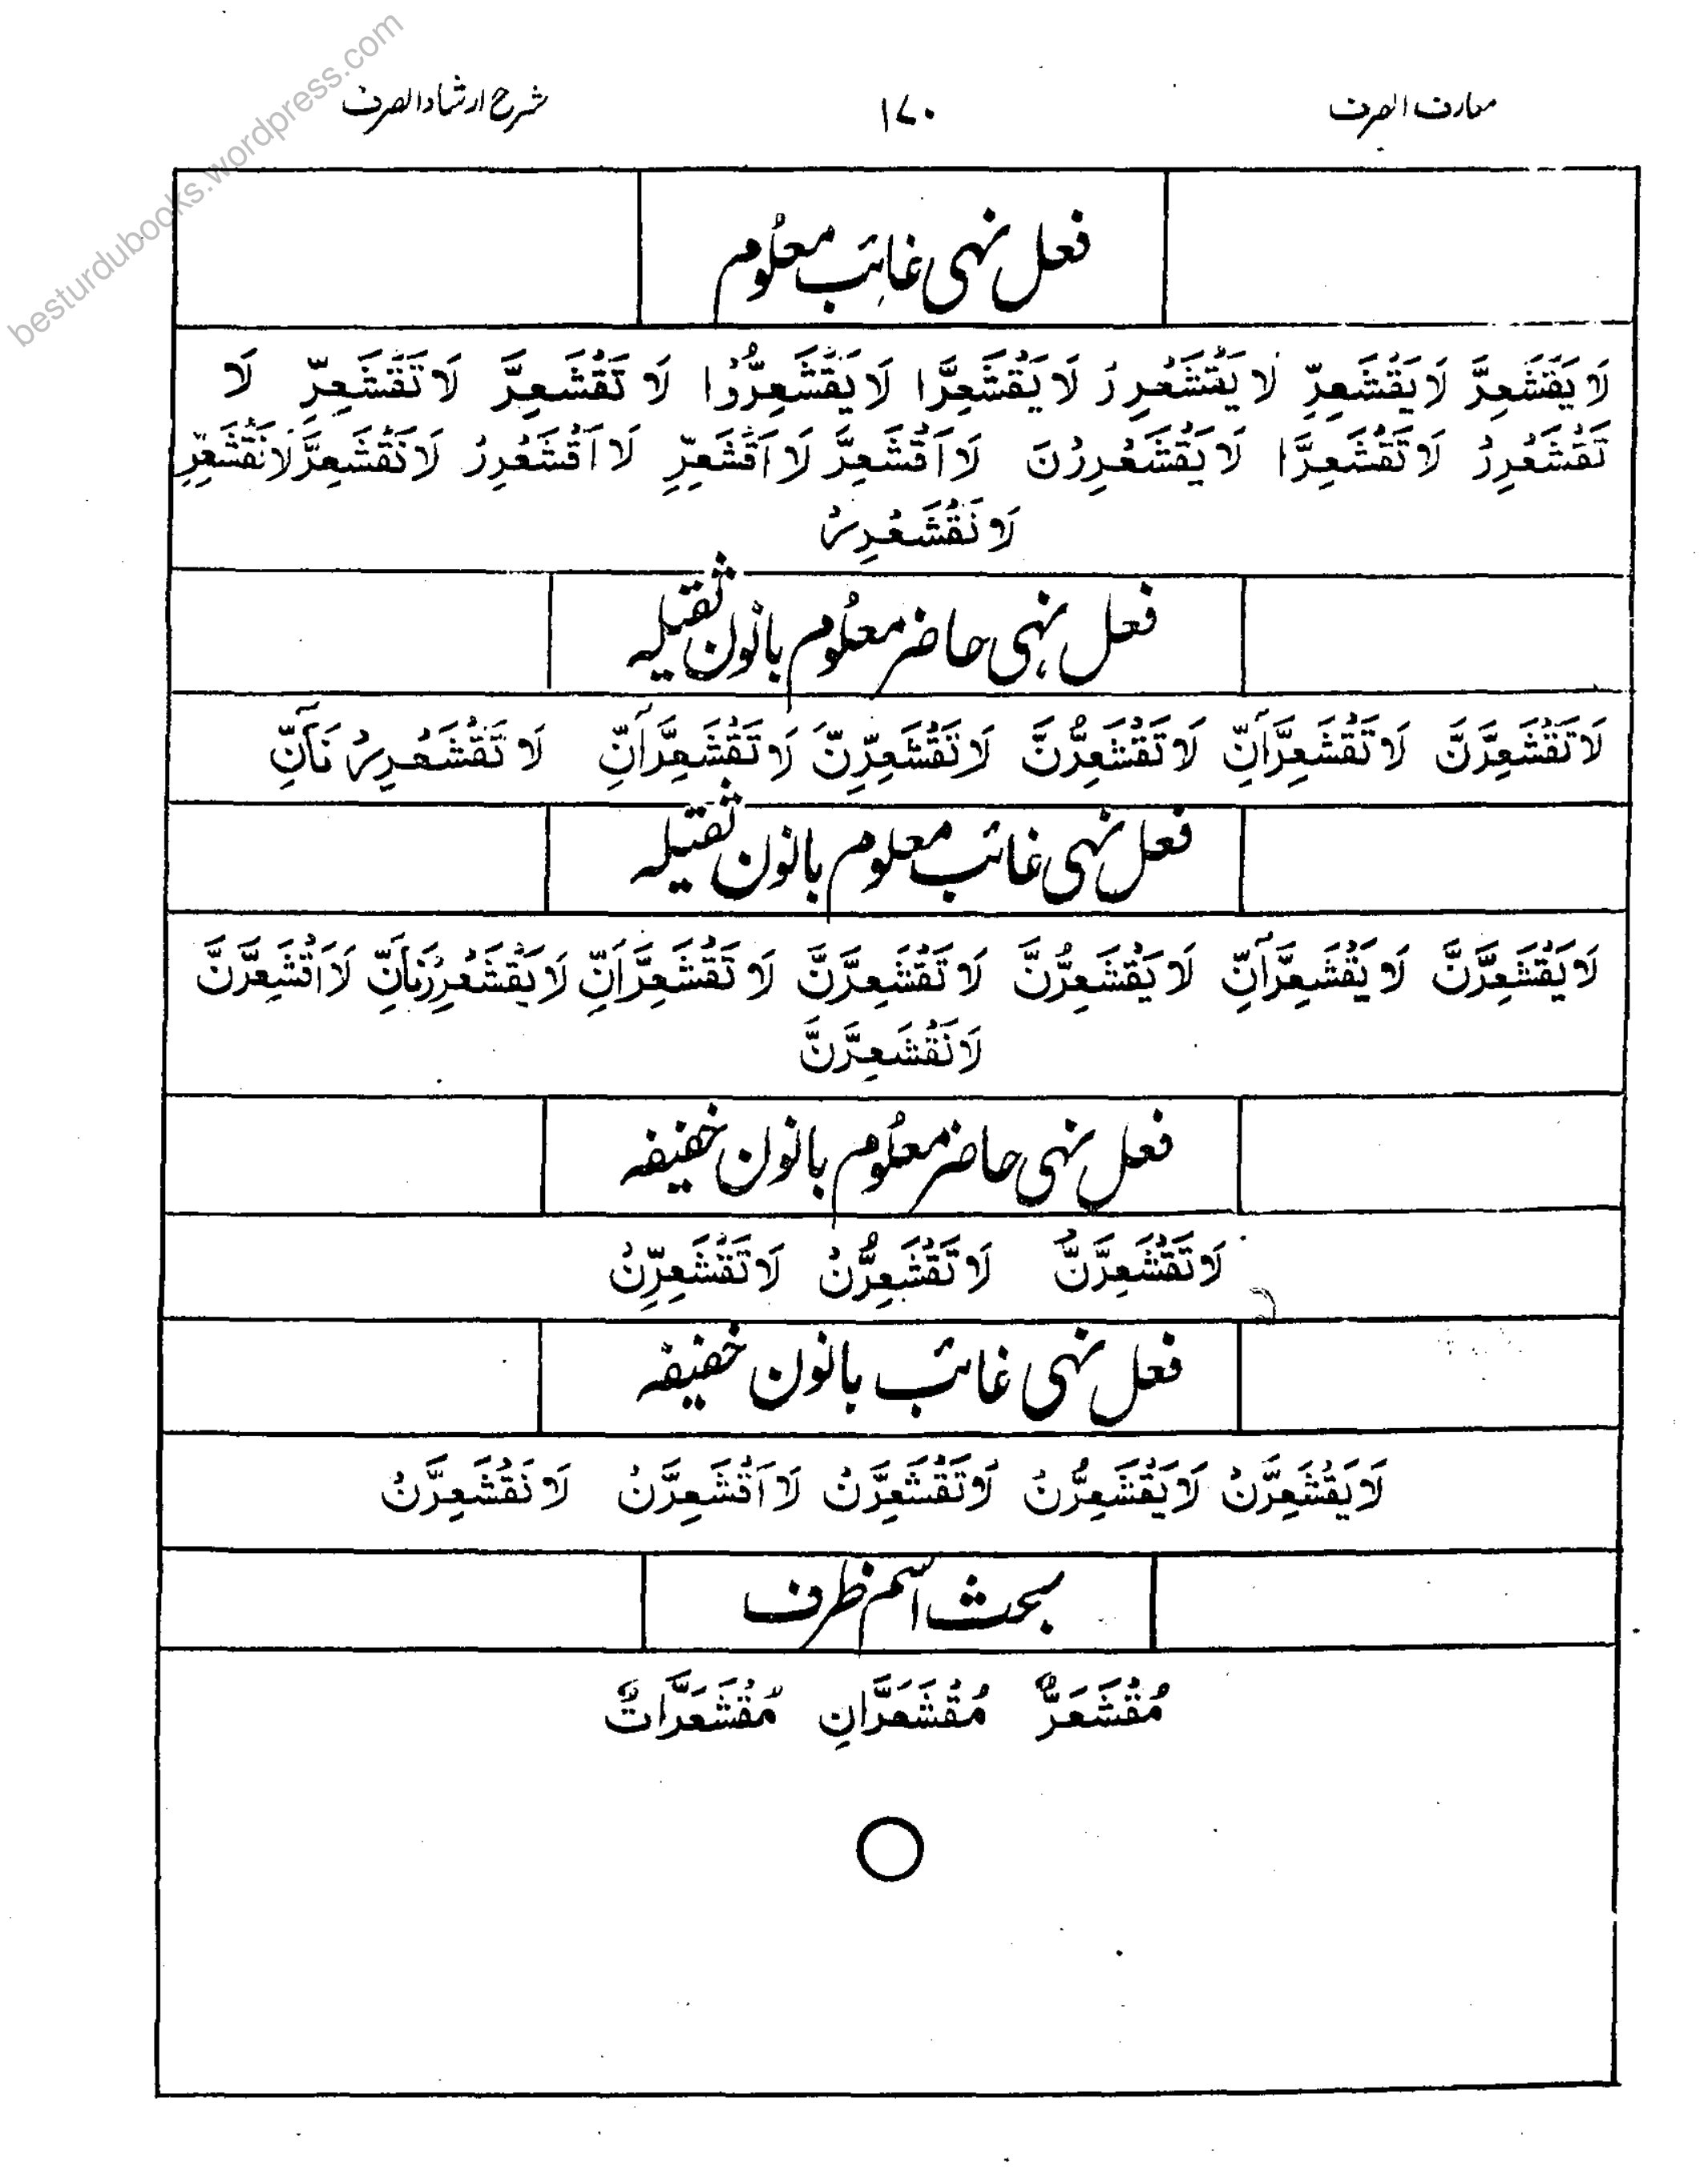 معارف الصرف ۱۷۰ شرح ارشاد الصرف
besturdubooks.wordpress.com
فعل نہی غائب معلُوم
لَا يَقْشَعِرَّ لَا يَقْشَعِرِّ لَا يَقْشَعْرِرْ لَا يَقْشَعِرَّا لَا يَقْشَعِرُّوْا لَا تَقْشَعِرَّ لَا تَقْشَعِرِّ لَا
تَقْشَعْرِرْ لَا تَقْشَعِرَّا لَا يَقْشَعْرِرْنَ لَا اَقْشَعِرَّ لَا اَقْشَعِرِّ لَا اَقْشَعْرِرْ لَا نَقْشَعِرَّ لَا نَقْشَعِرِّ
لَا نَقْشَعْرِرْ
فعل نہی حاضر معلُوم بانون ثقیلہ
لَا تَقْشَعِرَّنَّ لَا تَقْشَعِرَّآنِّ لَا تَقْشَعِرُّنَّ لَا تَقْشَعِرِّنَّ لَا تَقْشَعِرَّآنِّ لَا تَقْشَعْرِرْنَآنِّ
فعل نہی غائب معلوم بانون ثقیلہ
لَا يَقْشَعِرَّنَّ لَا يَقْشَعِرَّآنِّ لَا يَقْشَعِرُّنَّ لَا تَقْشَعِرَّنَّ لَا تَقْشَعِرَّانِّ لَا يَقْشَعْرِرْنَانِّ لَا اَقْشَعِرَّنَّ
لَا نَقْشَعِرَّنَّ
فعل نہی حاضر معلُوم بانون خفیفہ
لَا تَقْشَعِرَّنْ لَا تَقْشَعِرُّنْ لَا تَقْشَعِرِّنْ
فعل نہی غائب بانون خفیفہ
لَا يَقْشَعِرَّنْ لَا يَقْشَعِرُّنْ لَا تَقْشَعِرَّنْ لَا اَقْشَعِرَّنْ لَا نَقْشَعِرَّنْ
مبحث اسم ظرف
مُقْشَعَرٌّ مُقْشَعَرَّانِ مُقْشَعَرَّاتٌ